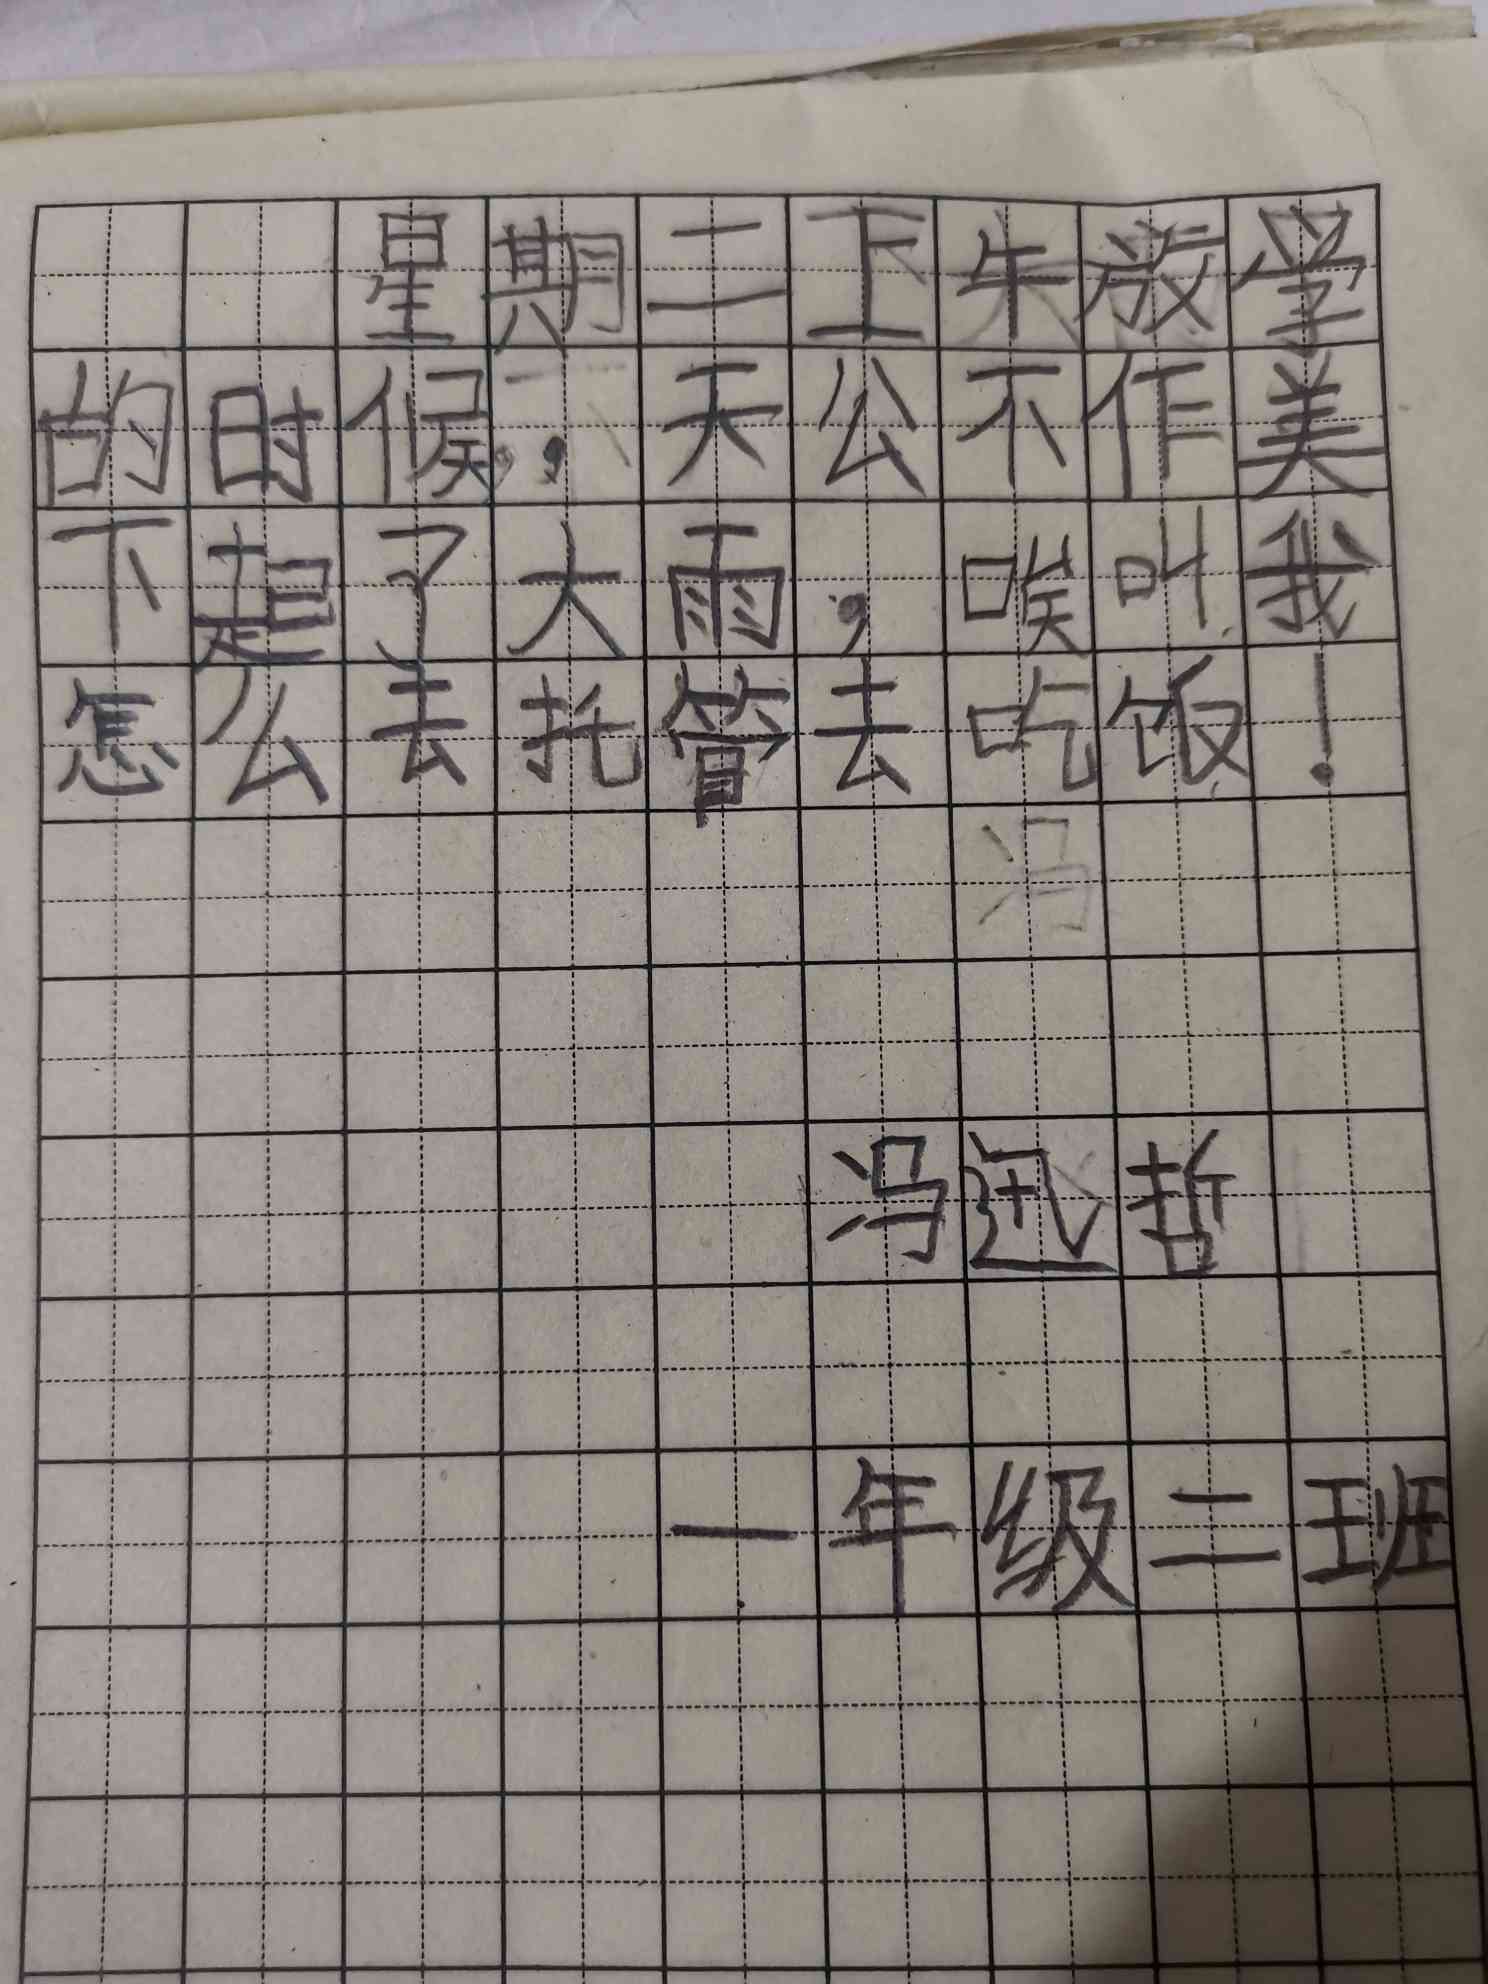 星期二上午放学
的时候，天公不作美
下起了大雨，唉叫我
怎么去托管去吃饭！
冯
冯迅哲
一年级二班